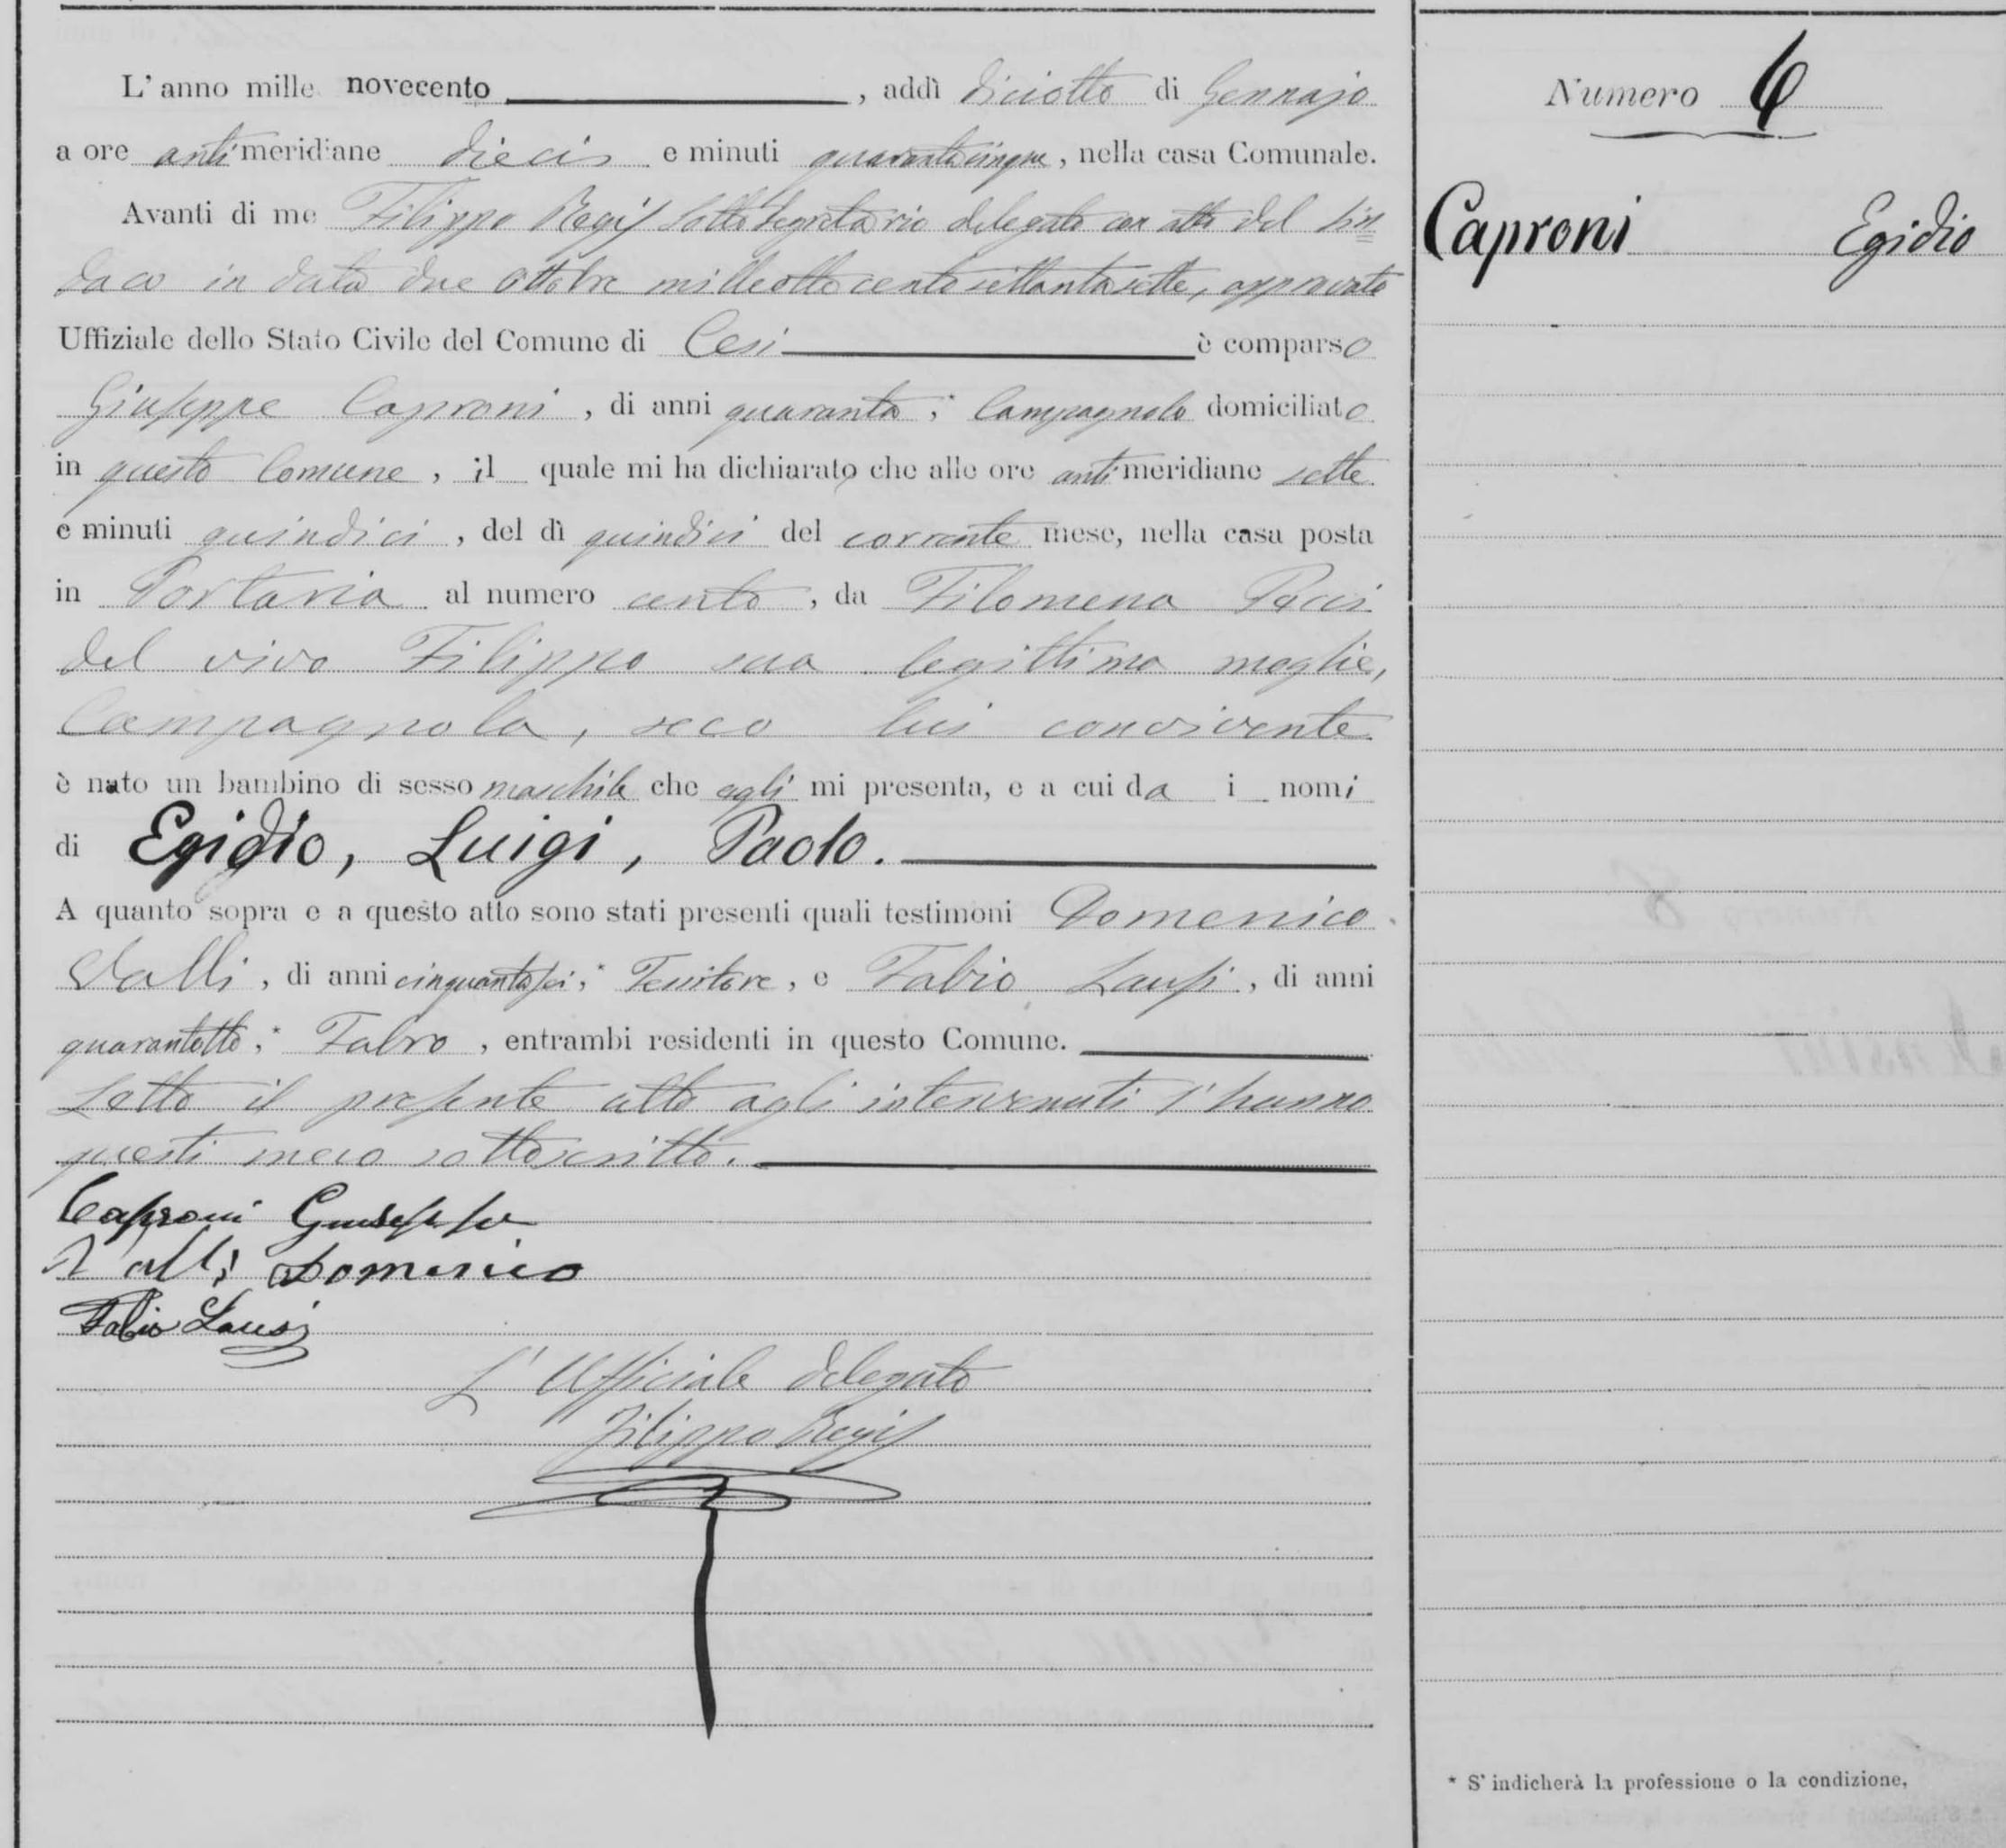 L'anno mille novecento, addì diciotto di Gennajo
a ore antimeridiane dieci e minuti quarantacinque, nella casa Comunale.
Avanti di me Filippo Regis Sotto Segretario delegato con atto del Sin
daco in data due Ottobre milleottocentosettantasette, approvato
Uffiziale dello Stato Civile del Comune di Cesi è comparso
Giuseppe Caproni, di anni quaranta,* Campagnolo domiciliato
in questo Comune, il quale mi ha dichiarato che alle ore antimeridiane sette
e minuti quindici, del dì quindici del corrente mese, nella casa posta
in Portaria al numero cento, da Filomena
del vivo Filippo sua legittima moglie,
Campagnola, seco lui convivente
è nato un bambino di sesso maschile che egli mi presenta, e a cui da i nomi
di Egidio, Luigi, Paolo.
A quanto sopra e a questo atto sono stati presenti quali testimoni Domenico
Valli, di anni cinquantasei,* Tessitore, e Fabio Lausi, di anni
quarantotto,* Fabro, entrambi residenti in questo Comune.
Letto il presente atto agli intervenuti l'hanno
questi meco sottoscritto.
Caproni Giuseppe
Valli Domenico
Fabio Lausi
L'Ufficiale delegato
Filippo Regis
Numero 6
Caproni Egidio
* S'indicherà la professione o la condizione.